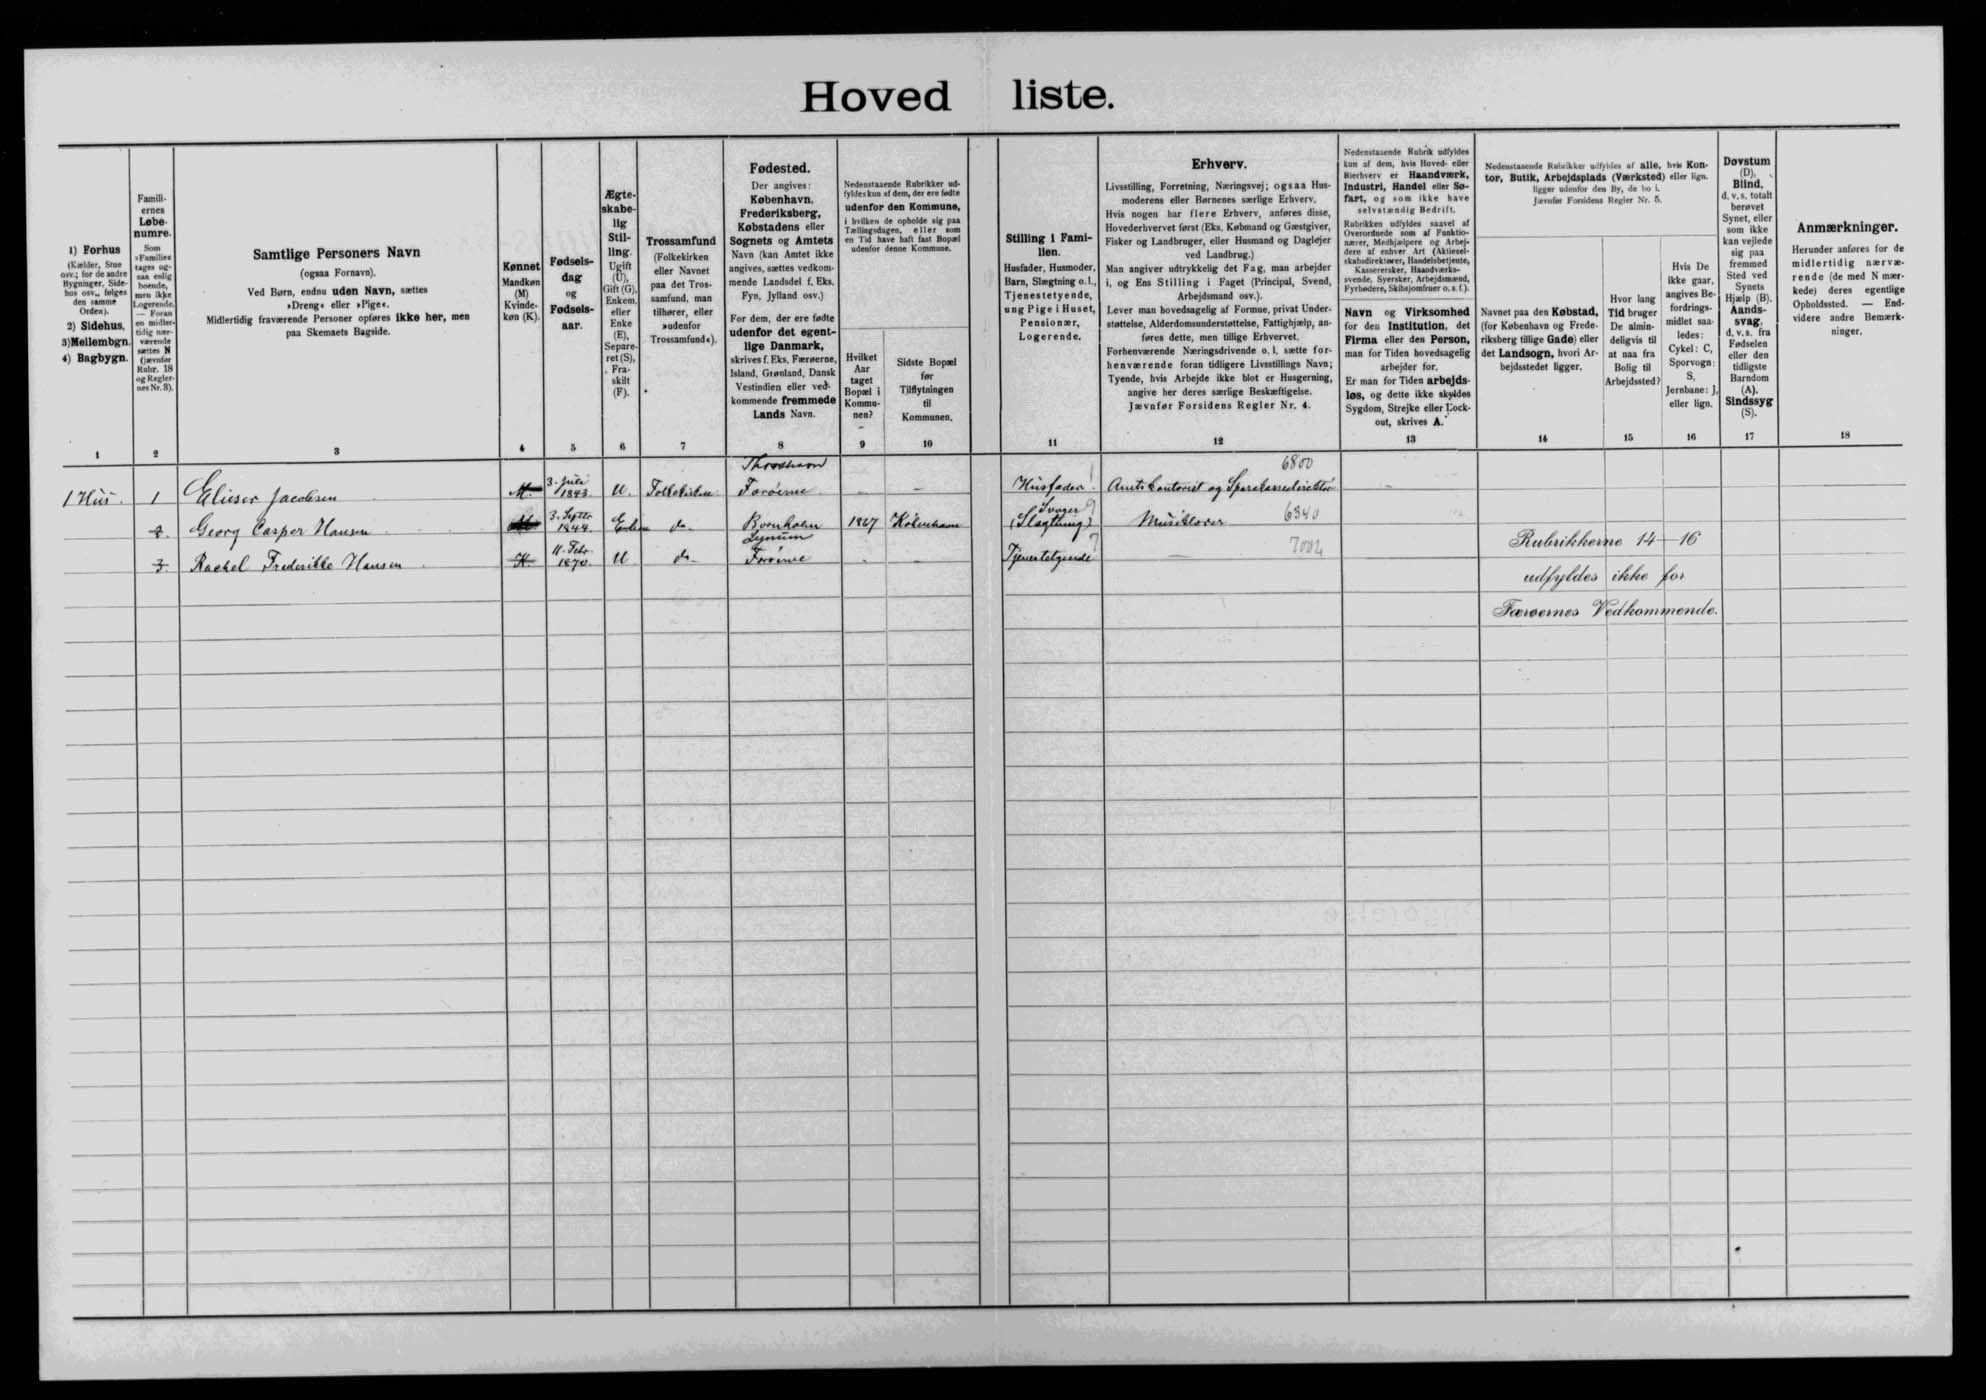 Hoved liste.
1) Forhus
(Kælder, Stue
osv.; for de andre
Bygninger, Side-
hus osv., følges
den samme
Orden).
2) Sidehus,
3) Mellembgn.
4) Bagbygn.
Famili-
ernes
Løbe-
numre.
Som
»Familie«
tages og-
saa enlig
boende,
men ikke
Logerende.
— Foran
en midler-
tidig nær-
værende
sættes N
(jævnfør
Rubr. 18
og Regler-
nes Nr. 3).
Samtlige Personers Navn
(ogsaa Fornavn).
Ved Børn, endnu uden Navn, sættes
»Dreng« eller »Pige«.
Midlertidig fraværende Personer opføres ikke her, men
paa Skemaets Bagside.
Kønnet
Mandkøn
(M)
Kvinde-
køn (K).
Fødsels-
dag
og
Fødsels-
aar.
Ægte-
skabe-
lig
Stil-
ling.
Ugift
(U),
Gift (G),
Enkem.
eller
Enke
(E),
Separe-
ret (S),
Fra-
skilt
(F).
Trossamfund
(Folkekirken
eller Navnet
paa det Tros-
samfund, man
tilhører, eller
»udenfor
Trossamfund«).
Fødested.
Der angives:
København,
Frederiksberg,
Købstadens eller
Sognets og Amtets
Navn (kan Amtet ikke
angives, sættes vedkom-
mende Landsdel f. Eks.
Fyn, Jylland osv.)
For dem, der ere fødte
udenfor det egent-
lige Danmark,
skrives f. Eks. Færøerne,
Island, Grønland, Dansk
Vestindien eller ved-
kommende fremmede
Lands Navn.
Nedenstaaende Rubrikker ud-
fyldes kun af dem, der ere fødte
udenfor den Kommune,
i hvilken de opholde sig paa
Tællingsdagen, eller som
en Tid have haft fast Bopæl
udenfor denne Kommune.
Hvilket
Aar
taget
Bopæl i
Kommu-
nen?
Sidste Bopæl
før
Tilflytningen
til
Kommunen.
Stilling i Fami-
lien.
Husfader, Husmoder,
Barn, Slægtning o.l.,
Tjenestetyende,
ung Pige i Huset,
Pensionær,
Logerende.
Erhverv.
Livsstilling, Forretning, Næringsvej; ogsaa Hus-
moderens eller Børnenes særlige Erhverv.
Hvis nogen har flere Erhverv, anføres disse,
Hovederhvervet først (Eks. Købmand og Gæstgiver,
Fisker og Landbruger, eller Husmand og Daglejer
ved Landbrug.)
Man angiver udtrykkelig det Fag, man arbejder
i, og Ens Stilling i Faget (Principal, Svend,
Arbejdsmand osv.).
Lever man hovedsagelig af Formue, privat Under-
støttelse, Alderdomsunderstøttelse, Fattighjælp, an-
føres dette, men tillige Erhvervet.
Forhenværende Næringsdrivende o. l. sætte for-
henværende foran tidligere Livsstillings Navn;
Tyende, hvis Arbejde ikke blot er Husgerning,
angive her deres særlige Beskæftigelse.
Jævnfør Forsidens Regler Nr. 4.
Nedenstaaende Rubrik udfyldes
kun af dem, hvis Hoved- eller
Bierhverv er Haandværk,
Industri, Handel eller Sø-
fart, og som ikke have
selvstændig Bedrift.
Rubrikken udfyldes saavel af
Overordnede som af Funktio-
nærer, Medhjælpere og Arbej-
dere af enhver Art (Aktiesel-
skabsdirektører, Handelsbetjente,
Kassererssker, Haandværks-
svende, Syersker, Arbejdsmænd,
Fyrbødere, Skibsjomfruer o. s. f.).
Navn og Virksomhed
for den Institution, det
Firma eller den Person,
man for Tiden hovedsagelig
arbejder for.
Er man for Tiden arbejds-
løs, og dette ikke skyldes
Sygdom, Strejke eller Lock-
out, skrives A.
Nedenstaaende Rubrikker udfyldes af alle, hvis Kon-
tor, Butik, Arbejdsplads (Værksted) eller lign.
ligger udenfor den By, de bo i.
Jævnfør Forsidens Regler Nr. 5.
Navnet paa den Købstad,
(for København og Frede-
riksberg tillige Gade) eller
det Landsogn, hvori Ar-
bejdsstedet ligger.
Hvor lang
Tid bruger
De almin-
deligvis til
at naa fra
Bolig til
Arbejdssted?
Hvis De
ikke gaar,
angives Be-
fordrings-
midlet saa-
ledes:
Cykel: C,
Sporvogn:
S,
Jernbane: J,
eller lign.
Døvstum
(D),
Blind,
d. v. s. totalt
berøvet
Synet, eller
som ikke
kan vejlede
sig paa
fremmed
Sted ved
Synets
Hjælp (B).
Aands-
svag,
d. v. s. fra
Fødselen
eller den
tidligste
Barndom
(A).
Sindssyg
(S).
Anmærkninger.
Herunder anføres for de
midlertidig nærvæ-
rende (de med N mær-
kede) deres egentlige
Opholdssted. — End-
videre andre Bemærk-
ninger.
1 2 3 4 5 6 7 8 9 10 11 12 13 14 15 16 17 18
Thorshavn 6800
1 Hus. 1 Elieser Jacobsen M. 3. Juli 1843. U. Folkekirken Færöerne. — — Husfader. 1 Amtskontorist og Sparekassedirektör —
2. Georg Casper Hansen M 3. Septbr 1844. Enkem do. Bornholm 1867 København Svoger (Slægtning) 9 Musiklærer 6340
3. Rachel Frederikke Hansen K 11. Febr. 1870. U do. Færöerne - - Tjenestetyende 7 — 7002
Rubrikkerne 14—16
udfyldes ikke for
Færøernes Vedkommende.